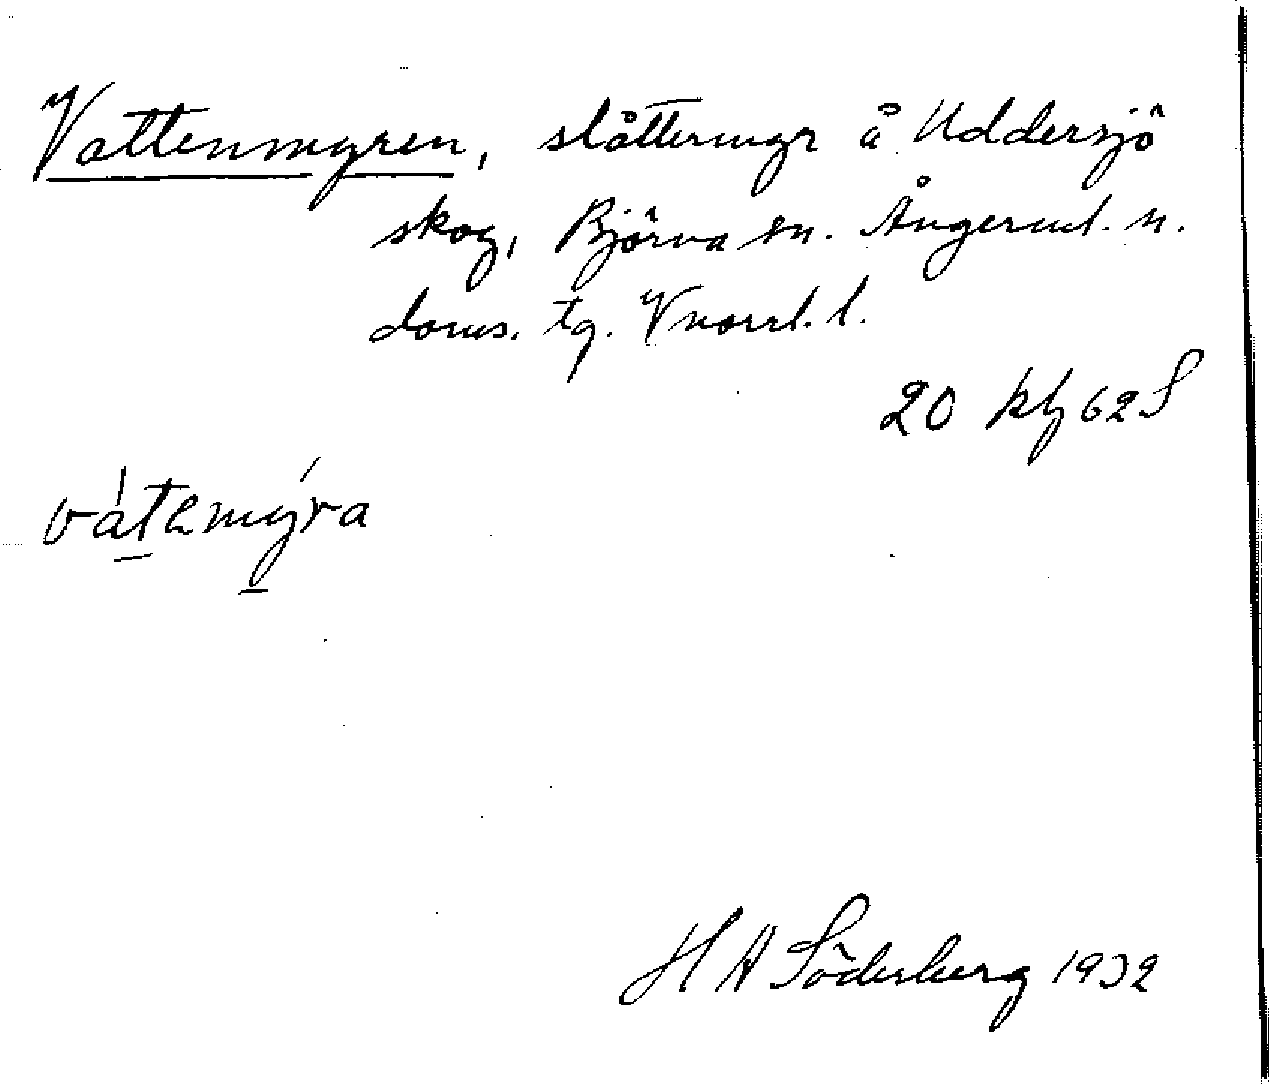 Vattenmyren, slåttermyr å Uddersjö
skog, Björna sn. Ångerml. n.
doms. tg. Vnorrl. l.
20 kbg 62 S
vátemýra
H A Söderberg 1932